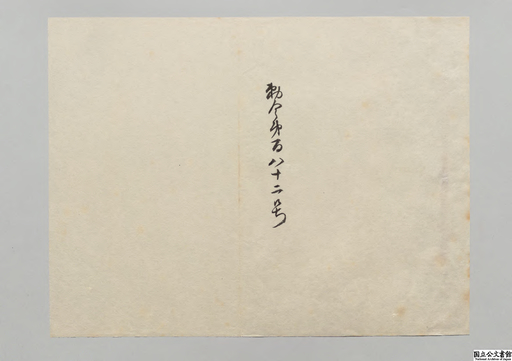 勅令第百八十二号
国立公文書館
National Archives of Japan